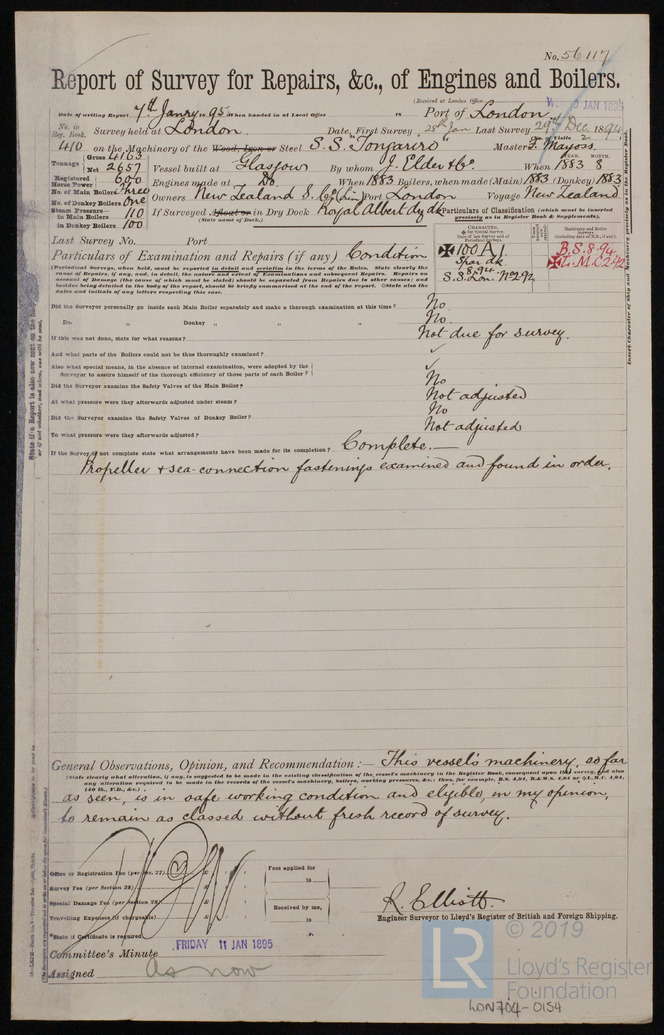 No. 56117
Report of Survey for Repairs, &c., of Engines and Boilers.
(Received at London Office
10 JAN 1895
Date of writing Report 7th Janry 1895 When handed in at Local Office 18 Port of London
No. in Reg. Book. Survey held at London. Date, First Survey 28th Last Survey 29th Dec. 1894
410 on the Machinery of the Wood, Iron or Steel S.S. "Tongariro" Master F. Mayoss
No. of Visits 2
Tonnage Gross 4163 Net 2657 Vessel built at Glasgow By whom J. Elder & Co. When 1883 8
YEAR. MONTH.
Registered Horse Power 600 Engines made at Do. When 1883 Boilers, when made (Main) 1883 (Donkey) 1883
No. of Main Boilers Three Owners New Zealand S. Co. (Lim) Port London Voyage New Zealand
No. of Donkey Boilers One
Steam Pressure in Main Boilers 110 If Surveyed Afloat or in Dry Dock Royal Albert dy dk
(State name of Dock.)
in Donkey Boilers 100
Particulars of Classification (which must be inserted precisely as in Register Book & Supplements).
Last Survey No. Port
100 A1. B.S. 8.94
Spar dk 8.94 L.M.C. 2.92
S.S. Lon. No 2.92
Particulars of Examination and Repairs (if any) Condition
(Periodical Surveys, when held, must be reported in detail and seriatim in the terms of the Rules. State clearly the
cause of Repairs, if any, and, in detail, the nature and extent of Examinations and subsequent Repairs. Repairs on
account of Damage (the cause of which must be stated) should be separated from Repairs due to other causes; and
besides being detailed in the body of the report, should be briefly summarised at the end of the report. State also the
dates and initials of any letters respecting this case.
Did the Surveyor personally go inside each Main Boiler separately and make a thorough examination at this time? No
Do. " Donkey " " " No.
If this was not done, state for what reasons? Not due for survey.
And what parts of the Boilers could not be thus thoroughly examined? ✓
Also what special means, in the absence of internal examination, were adopted by the
Surveyor to assure himself of the thorough efficiency of those parts of each Boiler? ✓
Did the Surveyor examine the Safety Valves of the Main Boiler? No
At what pressure were they afterwards adjusted under steam? Not adjusted
Did the Surveyor examine the Safety Valves of Donkey Boiler? No
To what pressure were they afterwards adjusted? Not adjusted
If the Survey is not complete state what arrangements have been made for its completion? Complete.—
Propeller & sea-connection fastenings examined and found in order.
General Observations, Opinion, and Recommendation:— This vessel's machinery, so far
(State clearly what alteration, if any, is suggested to be made in the existing classification of the vessel's machinery in the Register Book, consequent upon this survey, and also
any alteration required to be made in the records of the vessel's machinery, boilers, working pressures, &c.: thus, for example, B.S. 4,94, B.&M.S. 4,94 or L.M.C. 4,94,
140 lb., F.D., &c.)
as seen, is in safe working condition and eligible, in my opinion,
to remain as classed without fresh record of survey.
Office or Registration Fee (per Sec. 27) £ Fees applied for
Survey Fee (per Section 28) £ 18
Special Damage Fee (per Section 28) £ Received by me,
Travelling Expenses (if chargeable) £ 18
R. Elliott.
Engineer Surveyor to Lloyd's Register of British and Foreign Shipping.
*State if Certificate is required
Committee's Minute FRIDAY 11 JAN 1895
Assigned As now
© 2019
LR
Lloyd's Register
Foundation
LON704-0154